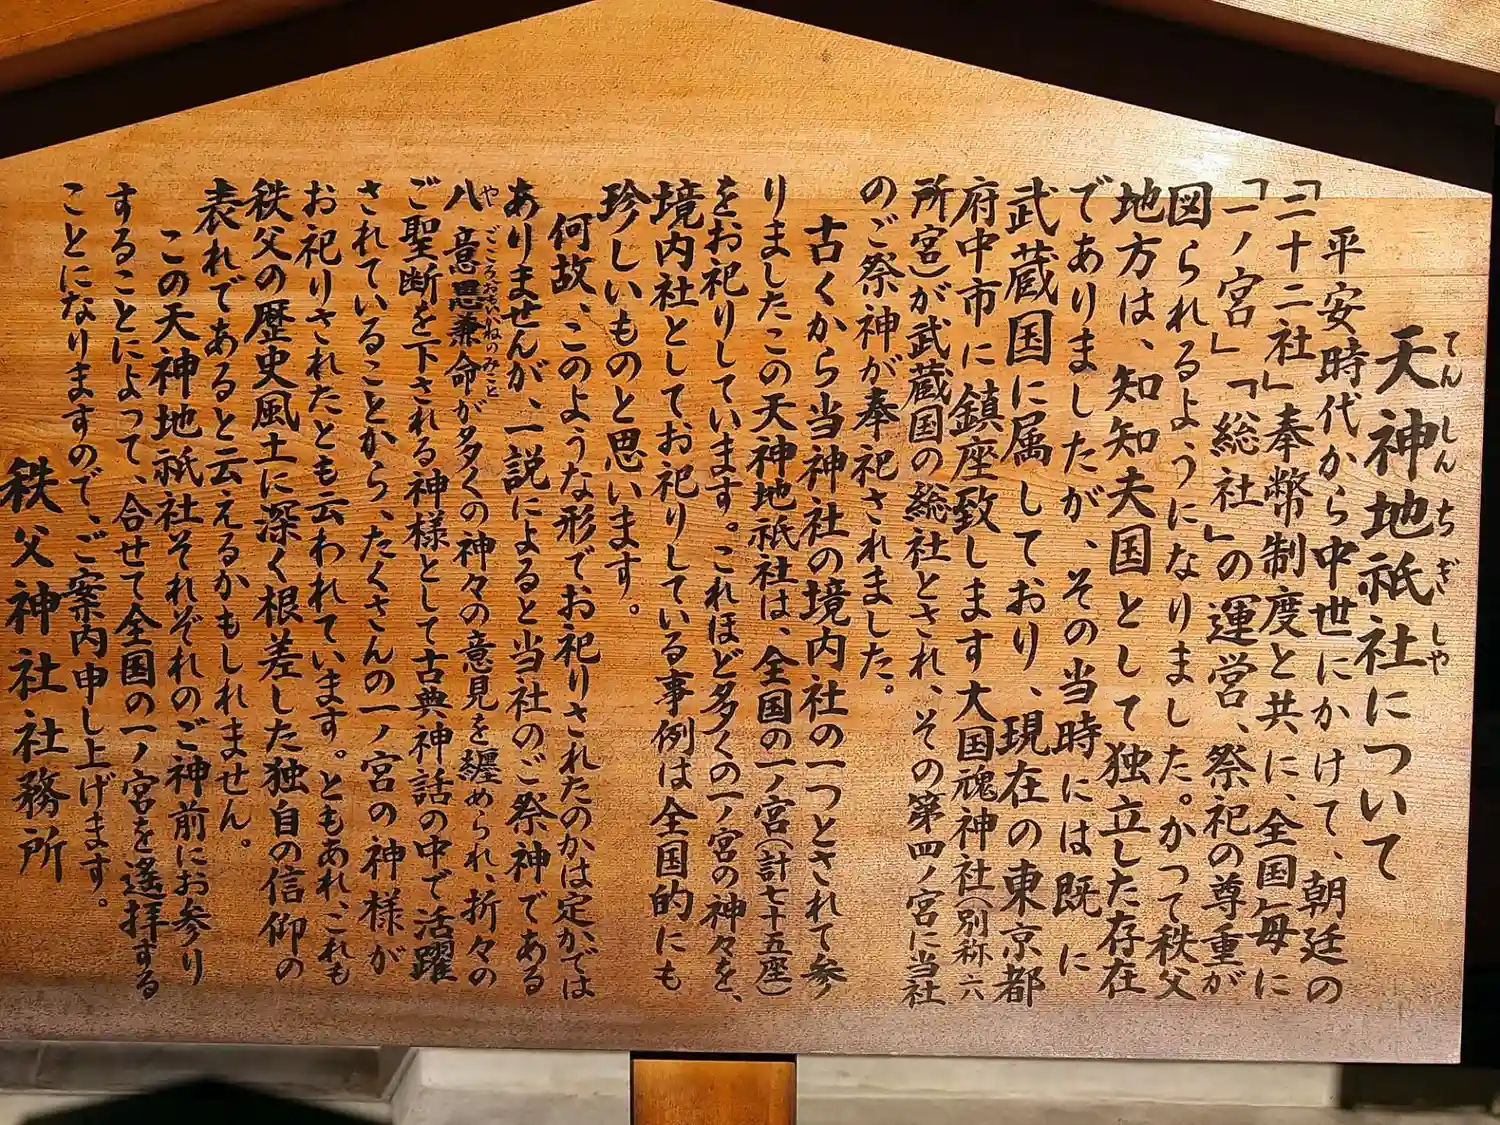 天神地祇社について
てんしんちぎしや
平安時代から中世にかけて、朝廷の
「二十二社」奉幣制度と共に、全国毎に
「一ノ宮」「総社」の運営、祭祀の尊重が
図られるようになりました。かつて秩父
地方は、知知夫国として独立した存在
でありましたが、その当時には既に
武蔵国に属しており、現在の東京都
府中市に鎮座致します大国魂神社(別称六
所宮)が武蔵国の総社とされ、その第四ノ宮に当社
のご祭神が奉祀されました。
古くから当神社の境内社の一つとされて参
りましたこの天神地祇社は、全国の一ノ宮(計七十五座)
をお祀りしています。これほど多くの一ノ宮の神々を、
境内社としてお祀りしている事例は全国的にも
珍しいものと思います。
何故、このような形でお祀りされたのかは定かでは
ありませんが、一説によると当社のご祭神である
八意思兼命が多くの神々の意見を纏められ、折々の
やごころおもいかねのみこと
ご聖断を下される神様として古典神話の中で活躍
されていることから、たくさんの一ノ宮の神様が
お祀りされたとも云われています。ともあれ、これも
秩父の歴史風土に深く根差した独自の信仰の
表れであると云えるかもしれません。
この天神地祇社それぞれのご神前にお参り
することによって、合せて全国の一ノ宮を遙拝する
ことになりますので、ご案内申し上げます。
秩父神社社務所